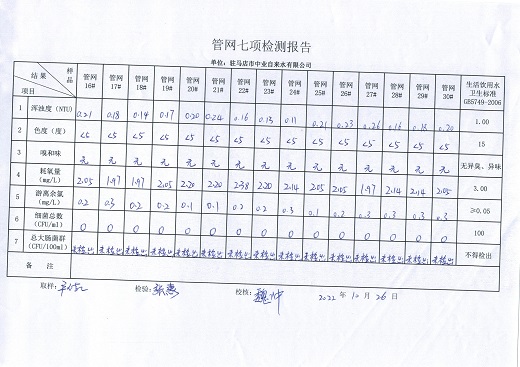 管网七项检测报告
单位：驻马店市中业自来水有限公司
结果 样品 管网16# 管网17# 管网18# 管网19# 管网20# 管网21# 管网22# 管网23# 管网24# 管网25# 管网26# 管网27# 管网28# 管网29# 管网30# 生活饮用水卫生标准GB5749-2006
项目
1 浑浊度(NTU) 0.21 0.18 0.14 0.17 0.20 0.24 0.16 0.13 0.11 0.21 0.23 0.26 0.16 0.20 1.00
2 色度（度） <5 <5 <5 <5 <5 <5 <5 <5 <5 <5 <5 <5 <5 <5 <5 15
3 嗅和味 无 无 无 无 无 无 无 无 无 无 无 无 无 无 无 无异臭、异味
4 耗氧量(mg/L) 2.05 1.97 1.97 2.05 2.20 2.20 2.38 2.20 2.14 2.05 2.05 1.97 2.14 2.14 2.05 3.00
5 游离余氯(mg/L) 0.2 0.3 0.2 0.2 0.1 0.1 0.2 0.2 0.3 0.1 0.3 0.3 0.3 0.3 0.3 ≥0.05
6 细菌总数(CFU/ml) 0 0 0 0 0 0 0 0 0 0 0 0 0 0 0 100
7 总大肠菌群(CFU/100ml) 未检出 未检出 未检出 未检出 未检出 未检出 未检出 未检出 未检出 未检出 未检出 未检出 未检出 未检出 未检出 不得检出
备 注
取样： 检验：张惠 校核：魏冲 2022年10月26日